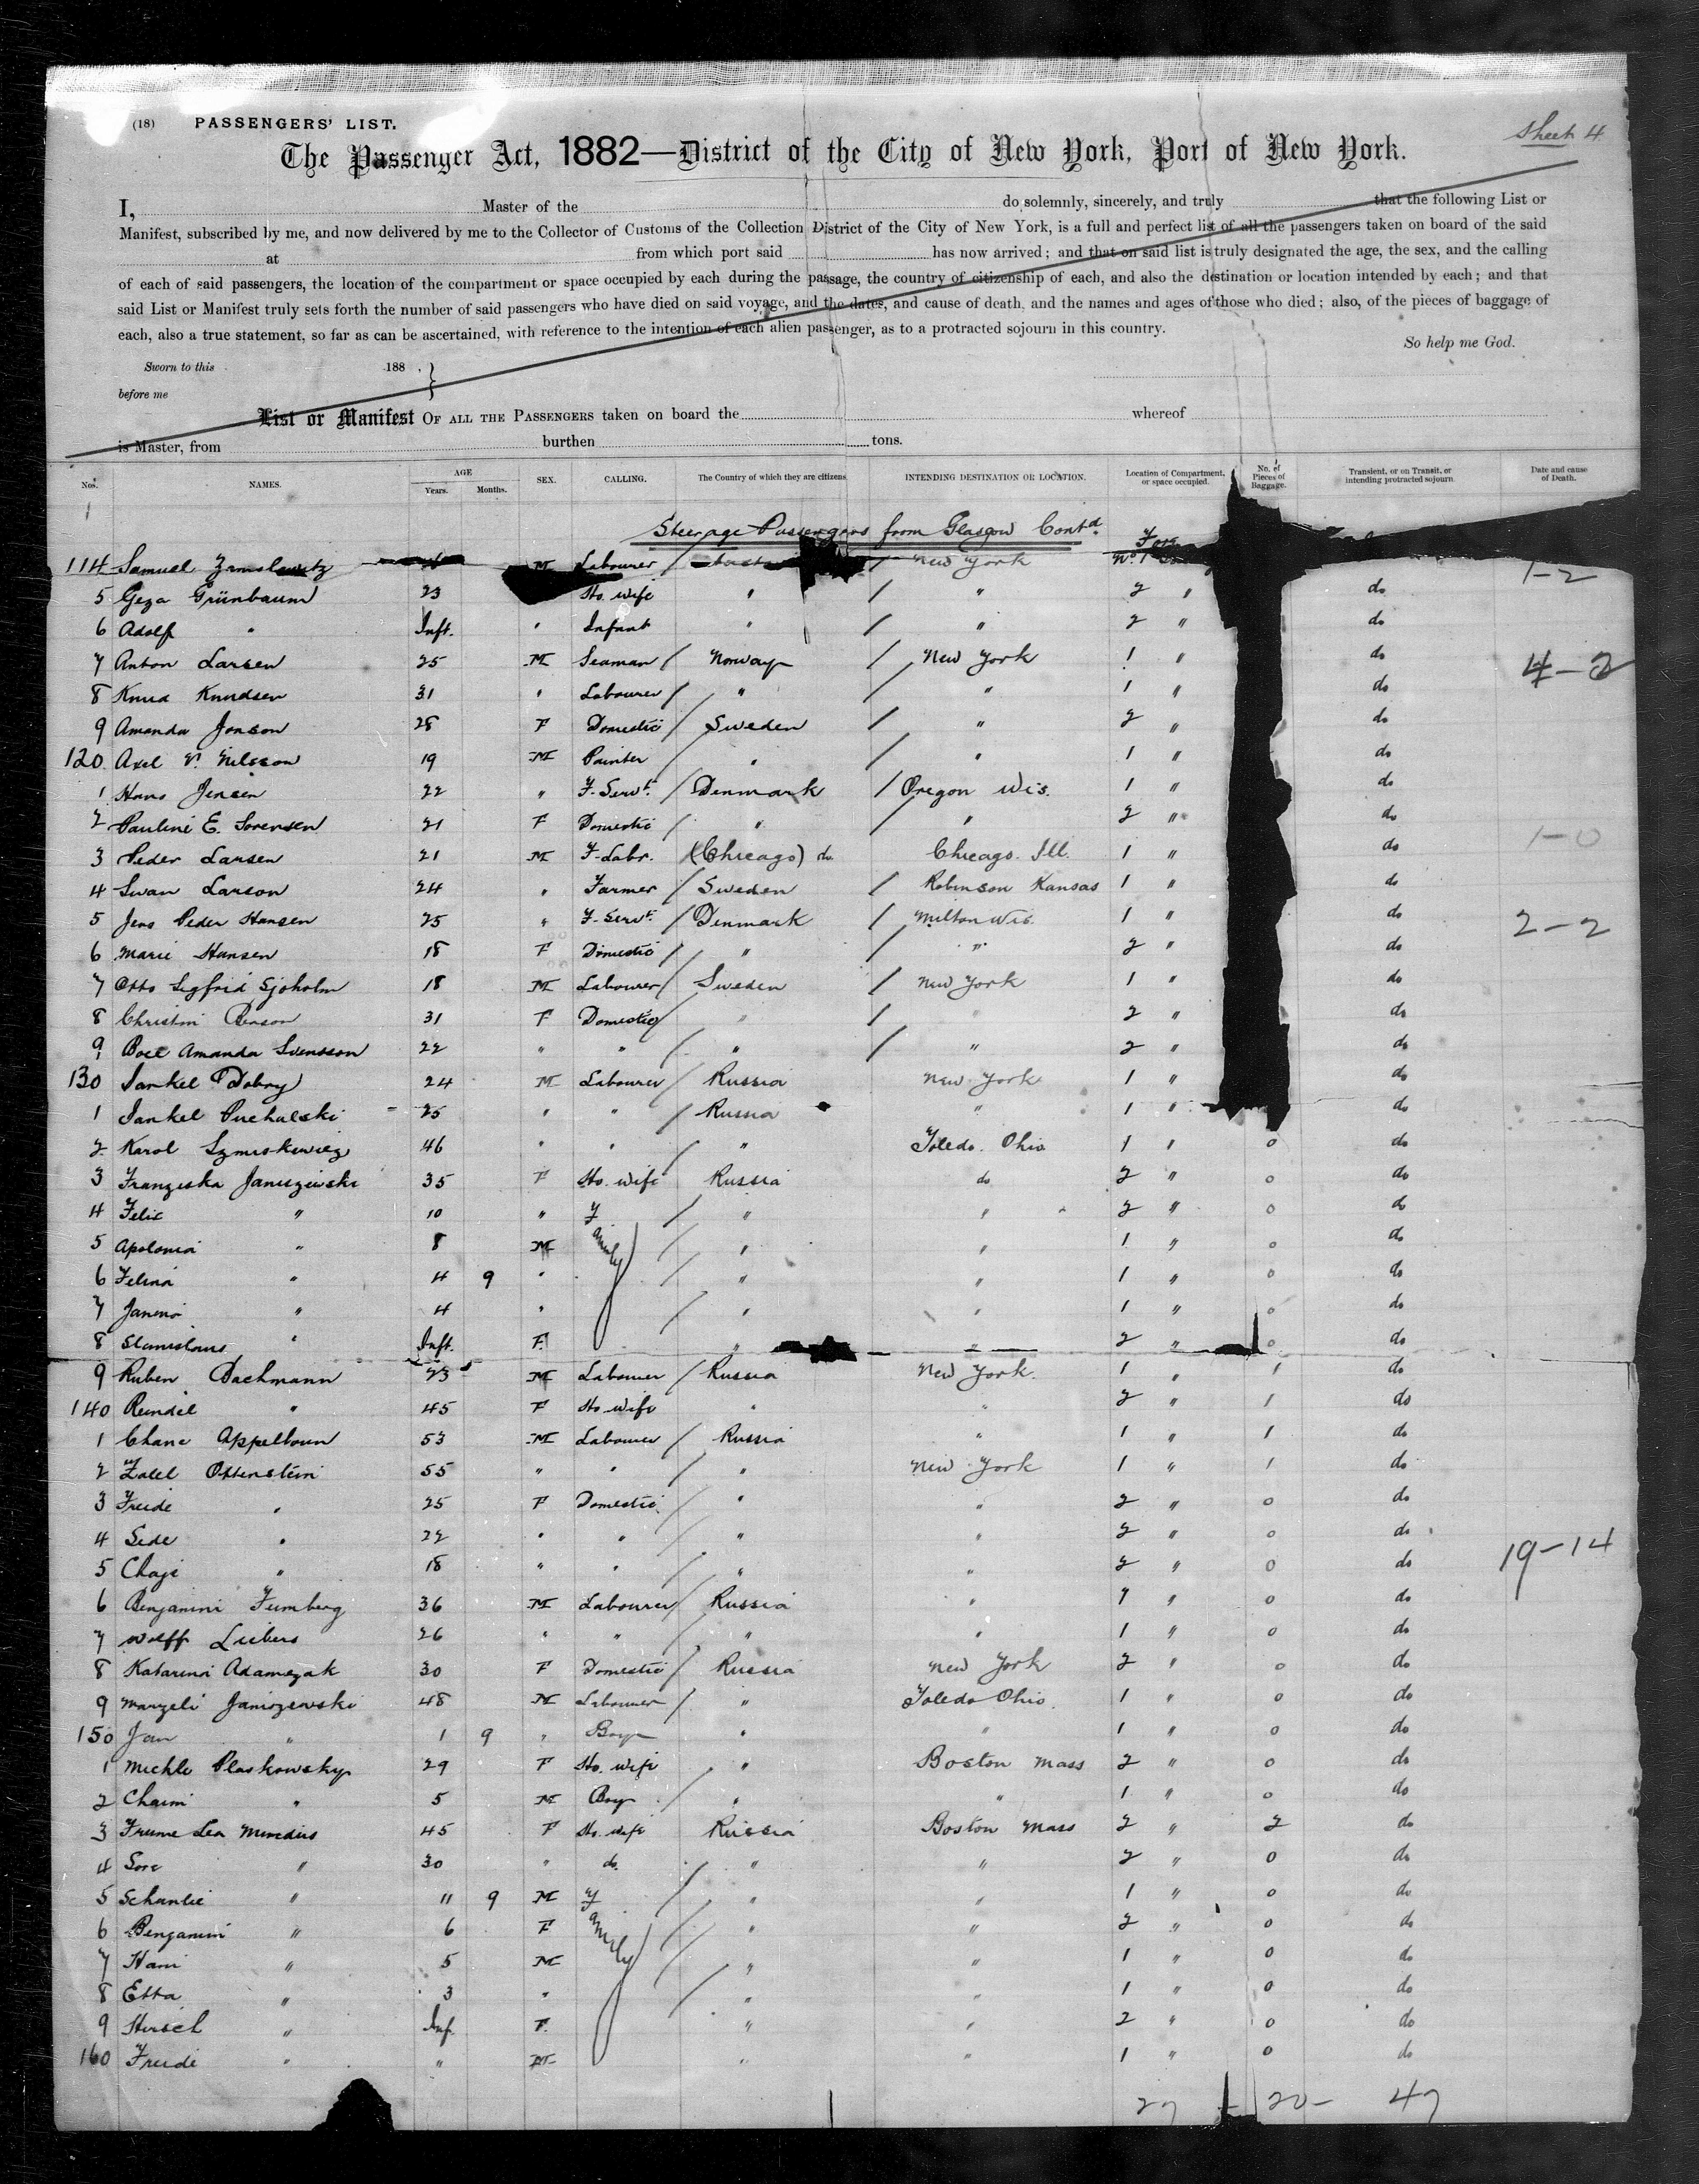 Sheet 4
(18) PASSENGERS' LIST.
The Passenger Act, 1882—District of the City of New York, Port of New York.
I, Master of the do solemnly, sincerely, and truly that the following List or
Manifest, subscribed by me, and now delivered by me to the Collector of Customs of the Collection District of the City of New York, is a full and perfect list of all the passengers taken on board of the said
at from which port said has now arrived; and that on said list is truly designated the age, the sex, and the calling
of each of said passengers, the location of the compartment or space occupied by each during the passage, the country of citizenship of each, and also the destination or location intended by each; and that
said List or Manifest truly sets forth the number of said passengers who have died on said voyage, and the dates, and cause of death, and the names and ages of those who died; also, of the pieces of baggage of
each, also a true statement, so far as can be ascertained, with reference to the intention of each alien passenger, as to a protracted sojourn in this country.
So help me God.
Sworn to this 188 .
before me
List or Manifest OF ALL THE PASSENGERS taken on board the whereof
is Master, from burthen tons.
Nos. NAMES. AGE Years. Months. SEX. CALLING. The Country of which they are citizens INTENDING DESTINATION OR LOCATION. Location of Compartment, or space occupied. No. of Pieces of Baggage. Transient, or on Transit, or intending protracted sojourn. Date and cause of Death.
Steerage Passengers from Glasgow Contd.
114 Samuel M Labourer / New York No. 1 1-2
5 Geza Grünbaum 23 Ho. wife " / " 2 " do
6 Adolf " Inft. " Infant " / " 2 " do
7 Anton Larsen 25 M Seaman / Norway / New York 1 " do 4-2
8 Knud Knudsen 31 " Labourer / " / " 1 " do
9 Amanda Jonson 28 F Domestic / Sweden / " 2 " do
120 Axel V. Nilsson 19 M Painter " / " 1 " do
1 Hans Jensen 22 " F. Servt. / Denmark / Oregon Wis. 1 " do
2 Pauline E. Sorensen 21 F Domestic / " / " 2 " do
3 Peder Larsen 21 M F-Labr. / (Chicago) do Chicago. Ill. 1 " do 1-0
4 Swan Larson 24 " Farmer / Sweden / Robinson Kansas 1 " do
5 Jens Peder Hansen 25 " F-Servt. / Denmark / Milton Wis. 1 " do 2-2
6 Marie Hansen 18 F Domestic / " / " 2 " do
7 Otto Sigfrid Sjoholm 18 M Labourer / Sweden / New York 1 " do
8 Christin 31 F Domestic / " / " 2 " do
9 Amanda Svensson 22 " " / " / " 2 " do
130 Jankel Dobry 24 M Labourer / Russia New York 1 " do
1 Jankel Puchalski 25 " " / Russia " 1 " do
2 Karol 46 " " / " Toledo. Ohio 1 " 0 do
3 Franziska Janiszewski 35 F Ho. wife Russia do 2 " 0 do
4 Felix " 10 " Family / " " 2 " 0 do
5 Apolonia " 8 M / " " 1 " 0 do
6 Felina " 4 9 " / " " 1 " 0 do
7 Janina " 4 " / " " 1 " 0 do
8 Stanislaus " Inft. F. " " 2 " 0 do
9 Ruben Bachmann 23 M Labourer / Russia New York. 1 " 1 do
140 Reindel " 45 F Ho wife " " 2 " 1 do
1 Chane Appelboun 53 M Labourer / Russia " 1 " 1 do
2 Ottenstein 55 " " / " New York 1 " 1 do
3 Freide " 25 F Domestic / " " 2 " 0 do
4 Sede " 22 " " / " " 2 " 0 do
5 Chaje " 18 " " / " " 2 " 0 do 19-14
6 Benjamin 36 M Labourer / Russia " 1 " 0 do
7 Wolff Liebers 26 " " / " " 1 " 0 do
8 Katarina Adamczak 30 F Domestic / Russia New York 2 " 0 do
9 Janiszewski 48 M Labourer / " Toledo Ohio. 1 " 0 do
150 Jan " 1 9 " Boy " " 1 " 0 do
1 Michle Plaskowsky 29 F Ho. wife " Boston Mass 2 " 0 do
2 Chaim " 5 M Boy / " " 1 " 0 do
3 Frume Lea 45 F Ho. wife Russia Boston Mass 2 " 2 do
4 Sore " 30 " do. / " " 2 " 0 do
5 " 11 9 M Family / " " 1 " 0 do
6 Benjamin " 6 F / " " 2 " 0 do
7 Hani " 5 M / " " 1 " 0 do
8 Etta " 3 " / " " 1 " 0 do
9 Hirsch " Inf. F. " " 2 " 0 do
160 Freide " " M " " 1 " 0 do
27 + 20 - 47